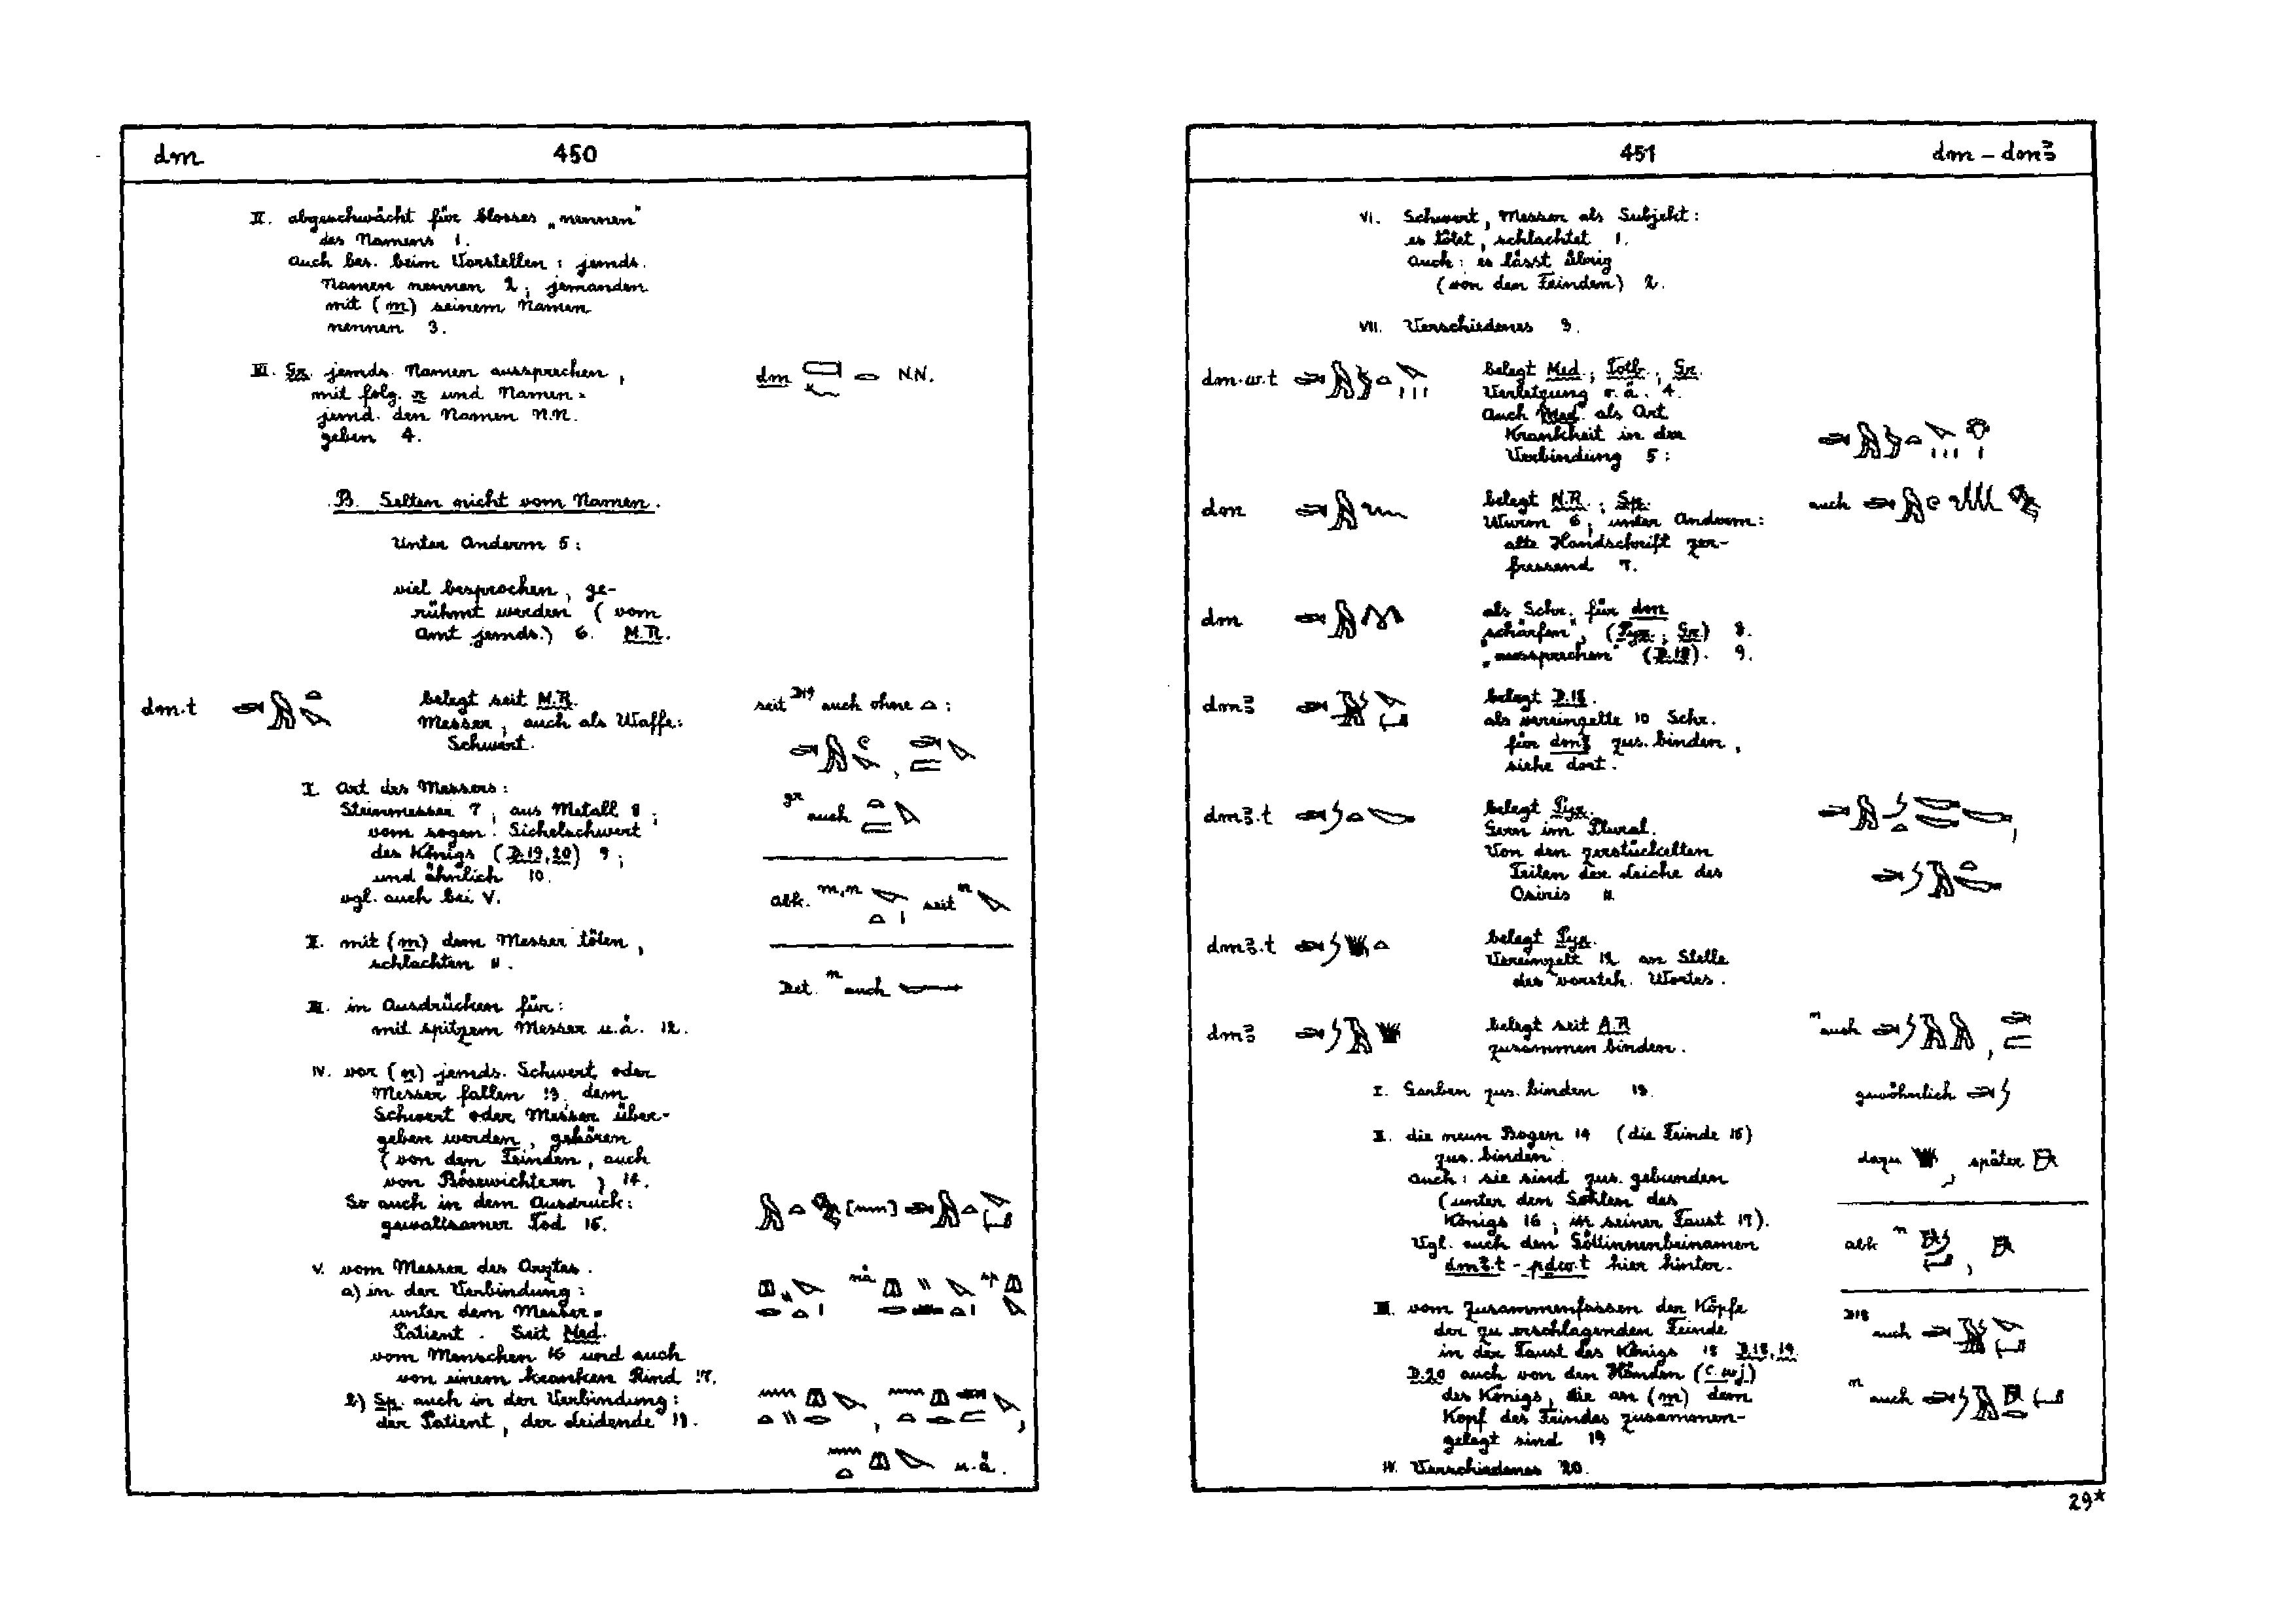 dm 450
II. abgeschwächt für blosses „nennen"
des Namens 1.
Auch bes. beim Vorstellen: jemds.
Namen nennen 2; jemanden
mit (m) seinem Namen
nennen 3.
III. Gr. jemds. Namen aussprechen,
mit folg. r und Namen =
jemd. den Namen N.N.
geben 4.
dm N.N.
B. Selten nicht vom Namen.
Unter Anderm 5:
viel besprochen, ge-
rühmt werden (vom
Amt jemds.) 6. M.R.
dm.t
belegt seit M.R.
Messer, auch als Waffe:
Schwert.
seit D19 auch ohne :
I. Art des Messers:
Steinmesser 7; aus Metall 8;
vom sogen. Sichelschwert
des Königs (D.19.20) 9;
und ähnlich 10.
vgl. auch bei V.
gr auch
abk. m,n seit n
II. mit (m) dem Messer töten,
schlachten 11.
Det. n auch
III. in Ausdrücken für:
mit spitzem Messer u.ä. 12.
IV. vor (n) jemds. Schwert oder
Messer fallen 13, dem
Schwert oder Messer über-
geben werden, gehören
(von den Feinden, auch
von Bösewichtern) 14.
So auch in dem Ausdruck:
gewaltsamer Tod 15.
V. vom Messer des Arztes.
a) in der Verbindung:
unter dem Messer =
Patient. Seit Med.
vom Menschen 16 und auch
von einem kranken Rind 17.
nä sp
b) Sp. auch in der Verbindung:
der Patient, der Leidende 18.
u.ä.
451 dm – dmꜣ
VI. Schwert, Messer als Subjekt:
es tötet, schlachtet 1.
Auch: es lässt übrig
(von den Feinden) 2.
VII. Verschiedenes 3.
dm.w.t
belegt Med.; Totb.; Gr.
Verletzung o.ä. 4.
Auch Med. als Art
Krankheit in der
Verbindung 5:
dm
belegt N.R.; Sp.
Wurm 6; unter Anderm:
alte Handschrift zer-
fressend 7.
auch
dm
als Schr. für dm
„schärfen", (Pyr.; Gr.) 8.
„aussprechen" (D.18). 9.
dmꜣ
belegt D.18.
als vereinzelte 10 Schr.
für dmꜣ zus. binden,
siehe dort.
dmꜣ.t
belegt Pyr.
Gern im Plural.
Von den zerstückelten
Teilen der Leiche des
Osiris 11
dmꜣ.t
belegt Pyr.
Vereinzelt 12 an Stelle
des vorsteh. Wortes.
dmꜣ
belegt seit A.R
zusammen binden.
n auch
I. Garben zus. binden 13.
gewöhnlich
II. die neun Bogen 14 (die Feinde 15)
zus. binden.
Auch: sie sind zus. gebunden
(unter den Sohlen des
Königs 16; in seiner Faust 17).
Vgl. auch den Göttinnenbeinamen
dmꜣ.t - pdw.t hier hinter.
dazu , später
abk n
III. vom Zusammenfassen der Köpfe
der zu erschlagenden Feinde
in der Faust des Königs 18 D.18.19.
D.20 auch von den Händen (c.wj)
des Königs, die an (m) dem
Kopf des Feindes zusammen-
gelegt sind 19
D18 auch
n auch
IV. Verschiedenes 20.
29*